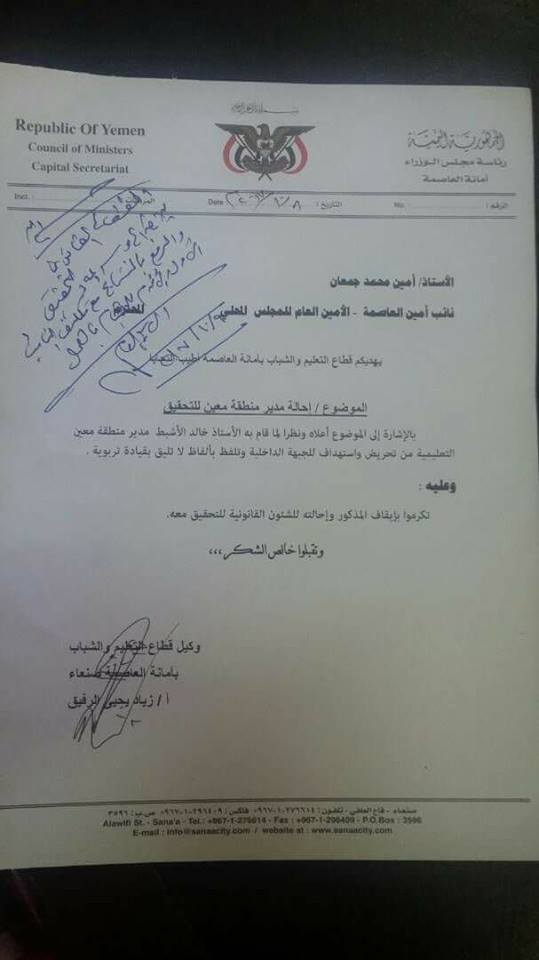 بسم الله الرحمن الرحيم
Republic Of Yemen
Council of Ministers
Capital Secretariat
الجمهورية اليمنية
رئاسة مجلس الوزراء
أمانة العاصمة
الرقم :
No.
التاريخ :
Date
Incl.
الأستاذ/ أمين محمد جمعان
نائب أمين العاصمة - الأمين العام للمجلس المحلي
يهديكم قطاع التعليم والشباب بأمانة العاصمة أطيب التحايا
الموضوع / إحالة مدير منطقة معين للتحقيق
بالإشارة إلى الموضوع أعلاه ونظرا لما قام به الأستاذ خالد الأشبط مدير منطقة معين
التعليمية من تحريض واستهداف للجبهة الداخلية وتلفظ بألفاظ لا تليق بقيادة تربوية .
وعليه :
تكرموا بإيقاف المذكور وإحالته للشئون القانونية للتحقيق معه.
وتقبلوا خالص الشكر ،،،
وكيل قطاع التعليم والشباب
بأمانة العاصمة صنعاء
أ/ زياد يحيى الرفيق
صنعاء - قاع العلفي - تلفون : ٢٧٦٦١٤-١-٩٦٧+ فاكس : ٢٩٦٤٠٩-١-٩٦٧+ ص.ب: ٣٥٩٦
Alawifi St. - Sana'a - Tel.: +967-1-276614 - Fax : +967-1-296409 - P.O.Box : 3596
E-mail : info@sanaacity.com / website at : www.sanaacity.com